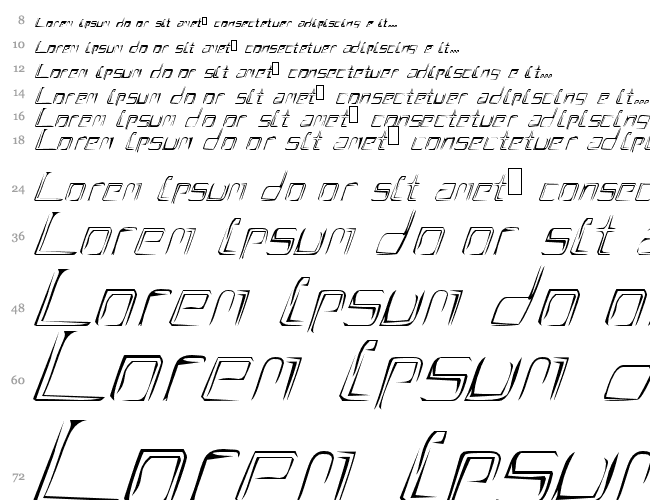 8 Lorem ipsum do or sit amet□ consectetuer adipiscing e it...
10 Lorem ipsum do or sit amet□ consectetuer adipiscing e it...
12 Lorem ipsum do or sit amet□ consectetuer adipiscing e it...
14 Lorem ipsum do or sit amet□ consectetuer adipiscing e it...
16 Lorem ipsum do or sit amet□ consectetuer adipiscing
18 Lorem ipsum do or sit amet□ consectetuer adip
24 Lorem ipsum do or sit amet□ consec
36 Lorem ipsum do or sit a
48 Lorem ipsum do o
60 Lorem ipsum d
72 Lorem ipsu